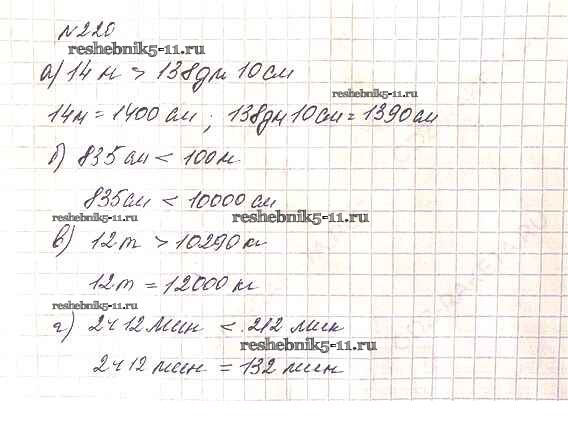 №220
reshebnik5-11.ru
а) 14 м > 138дм 10см
reshebnik5-11.ru
14м = 1400 см ; 138дм 10см = 1390 см
б) 835см < 100м
835см < 10000 см
reshebnik5-11.ru
reshebnik5-11.ru
в) 12т > 10290 кг
12т = 12000 кг
reshebnik5-11.ru
г) 2ч 12 мин < 212 мин
reshebnik5-11.ru
2ч 12 мин = 132 мин